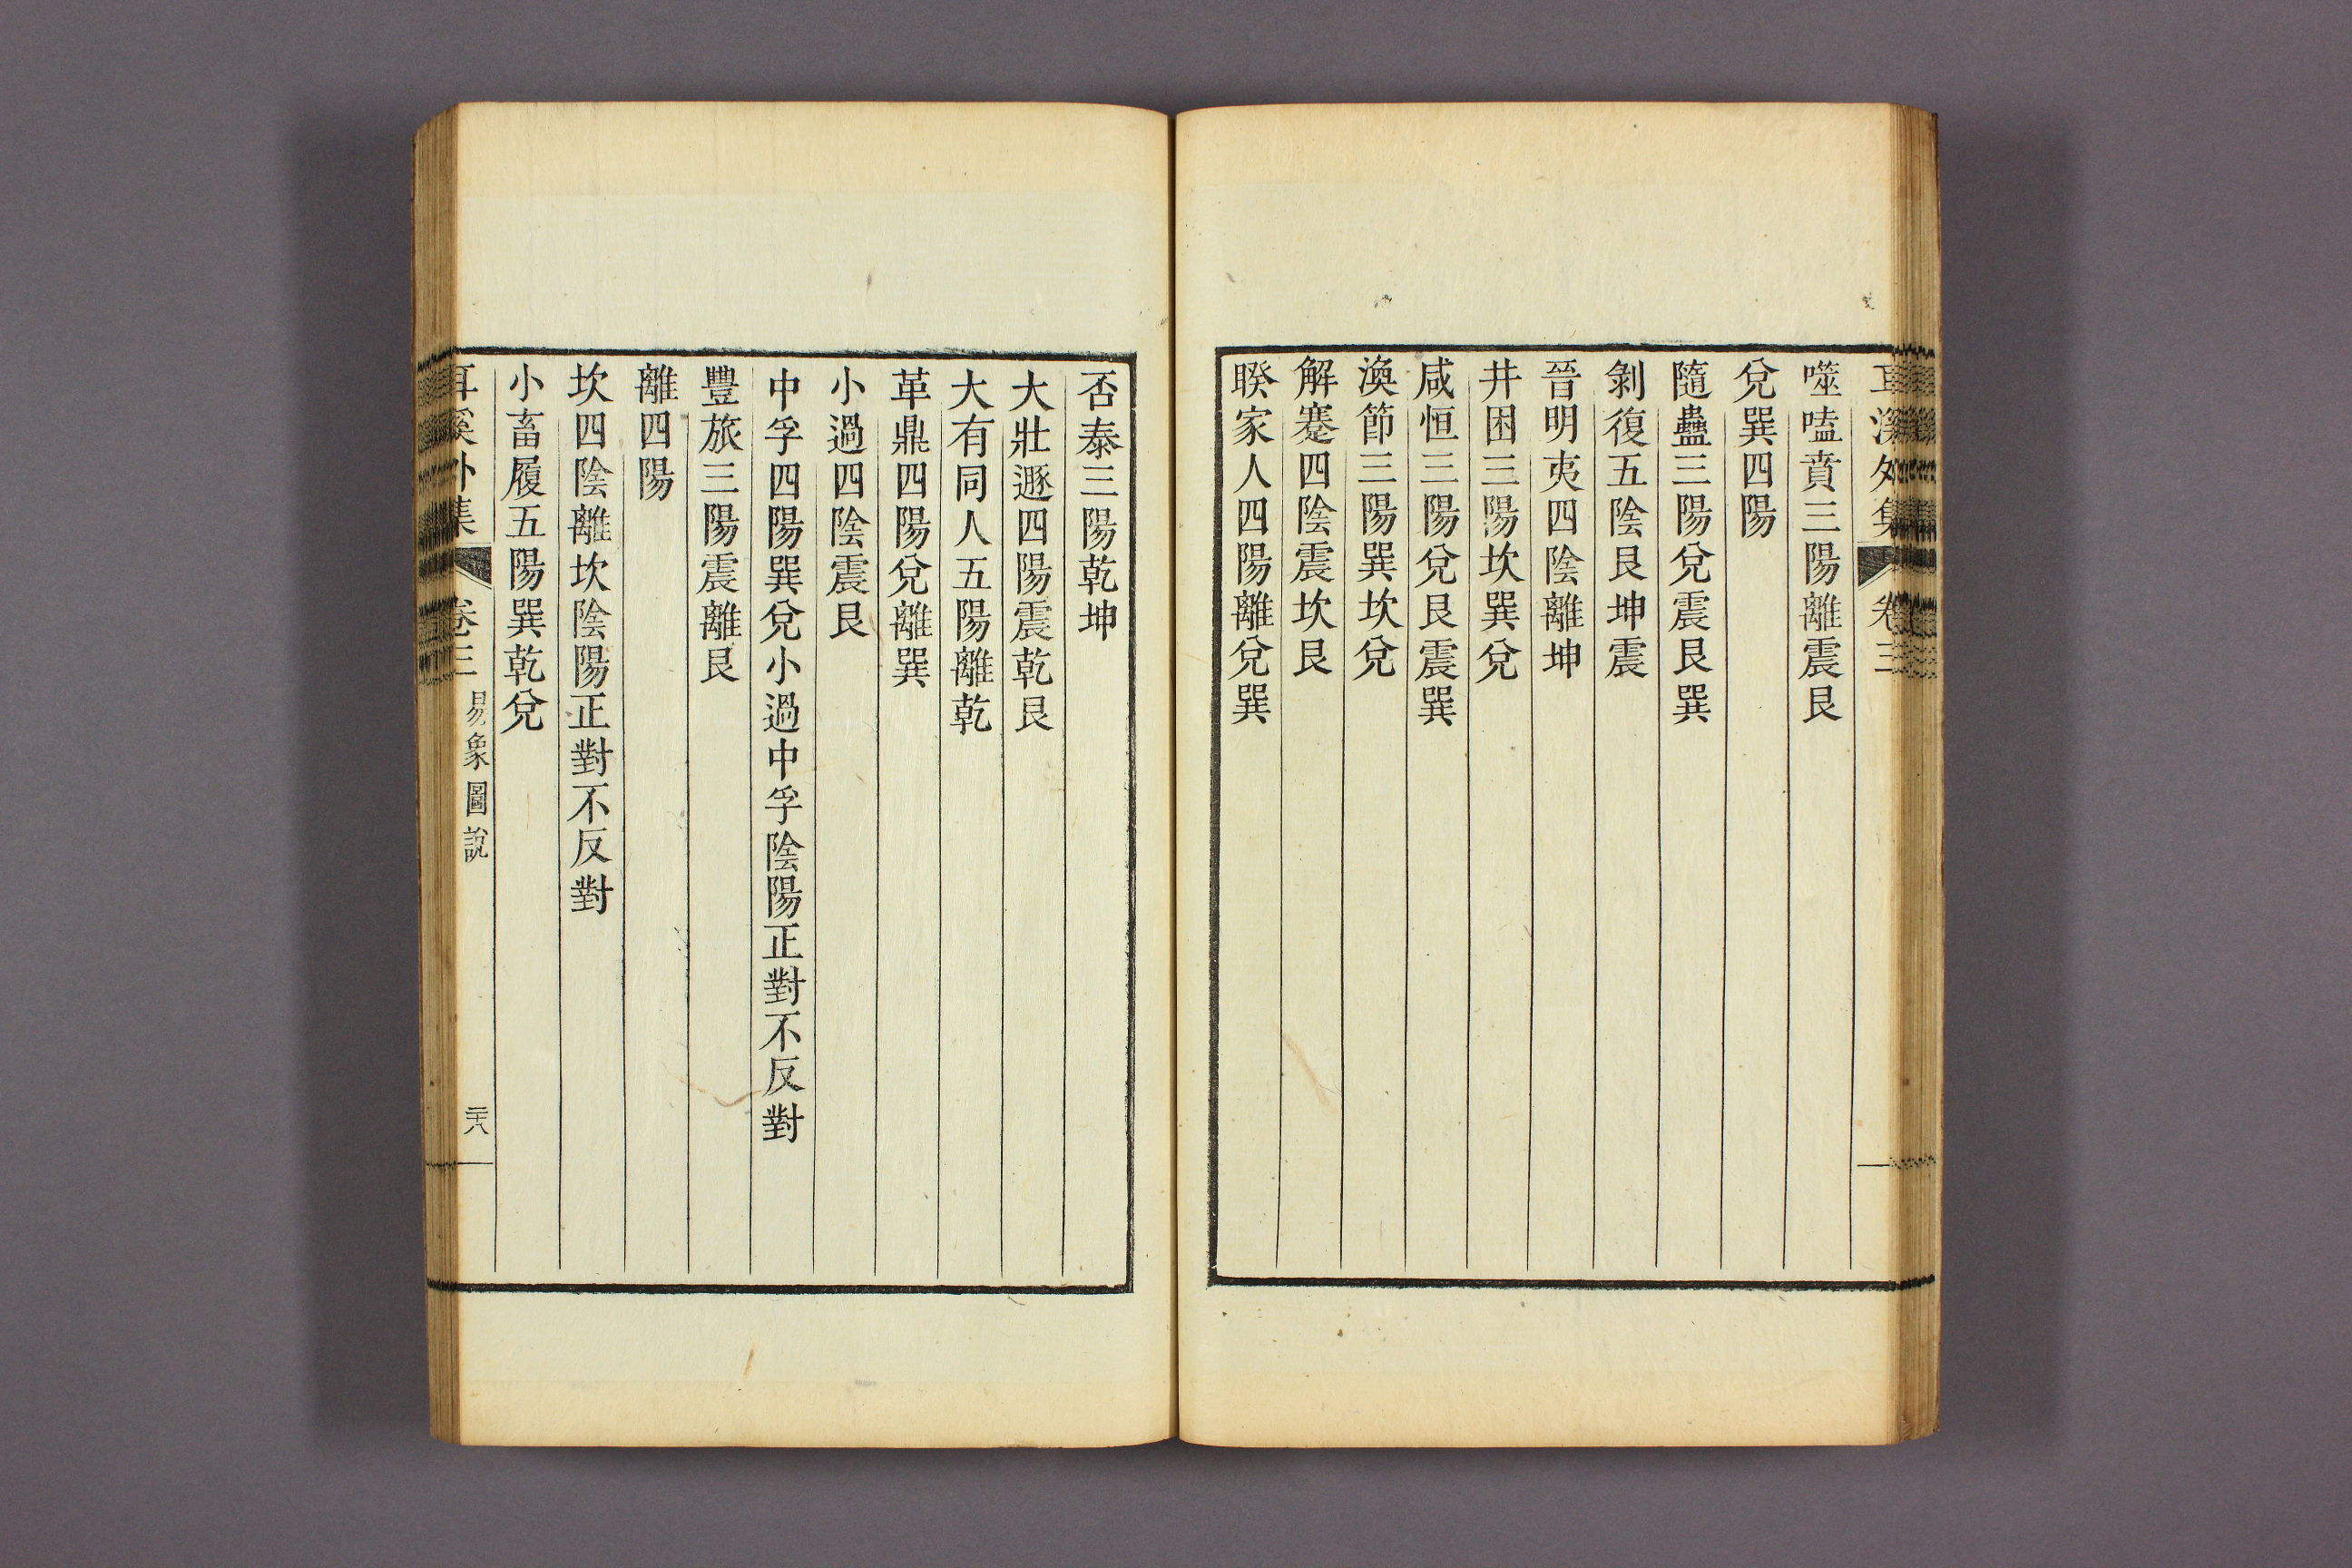 耳溪外集 卷三
噬嗑賁三陽離震艮
兌巽四陽
隨蠱三陽兌震艮巽
剝復五陰艮坤震
晉明夷四陰離坤
井困三陽坎巽兌
咸恒三陽兌艮震巽
渙節三陽巽坎兌
解蹇四陰震坎艮
睽家人四陽離兌巽
否泰三陽乾坤
大壯遯四陽震乾艮
大有同人五陽離乾
革鼎四陽兌離巽
小過四陰震艮
中孚四陽巽兌小過中孚陰陽正對不反對
豐旅三陽震離艮
離四陽
坎四陰離坎陰陽正對不反對
小畜履五陽巽乾兌
耳溪外集 卷三 易象圖說 二十八